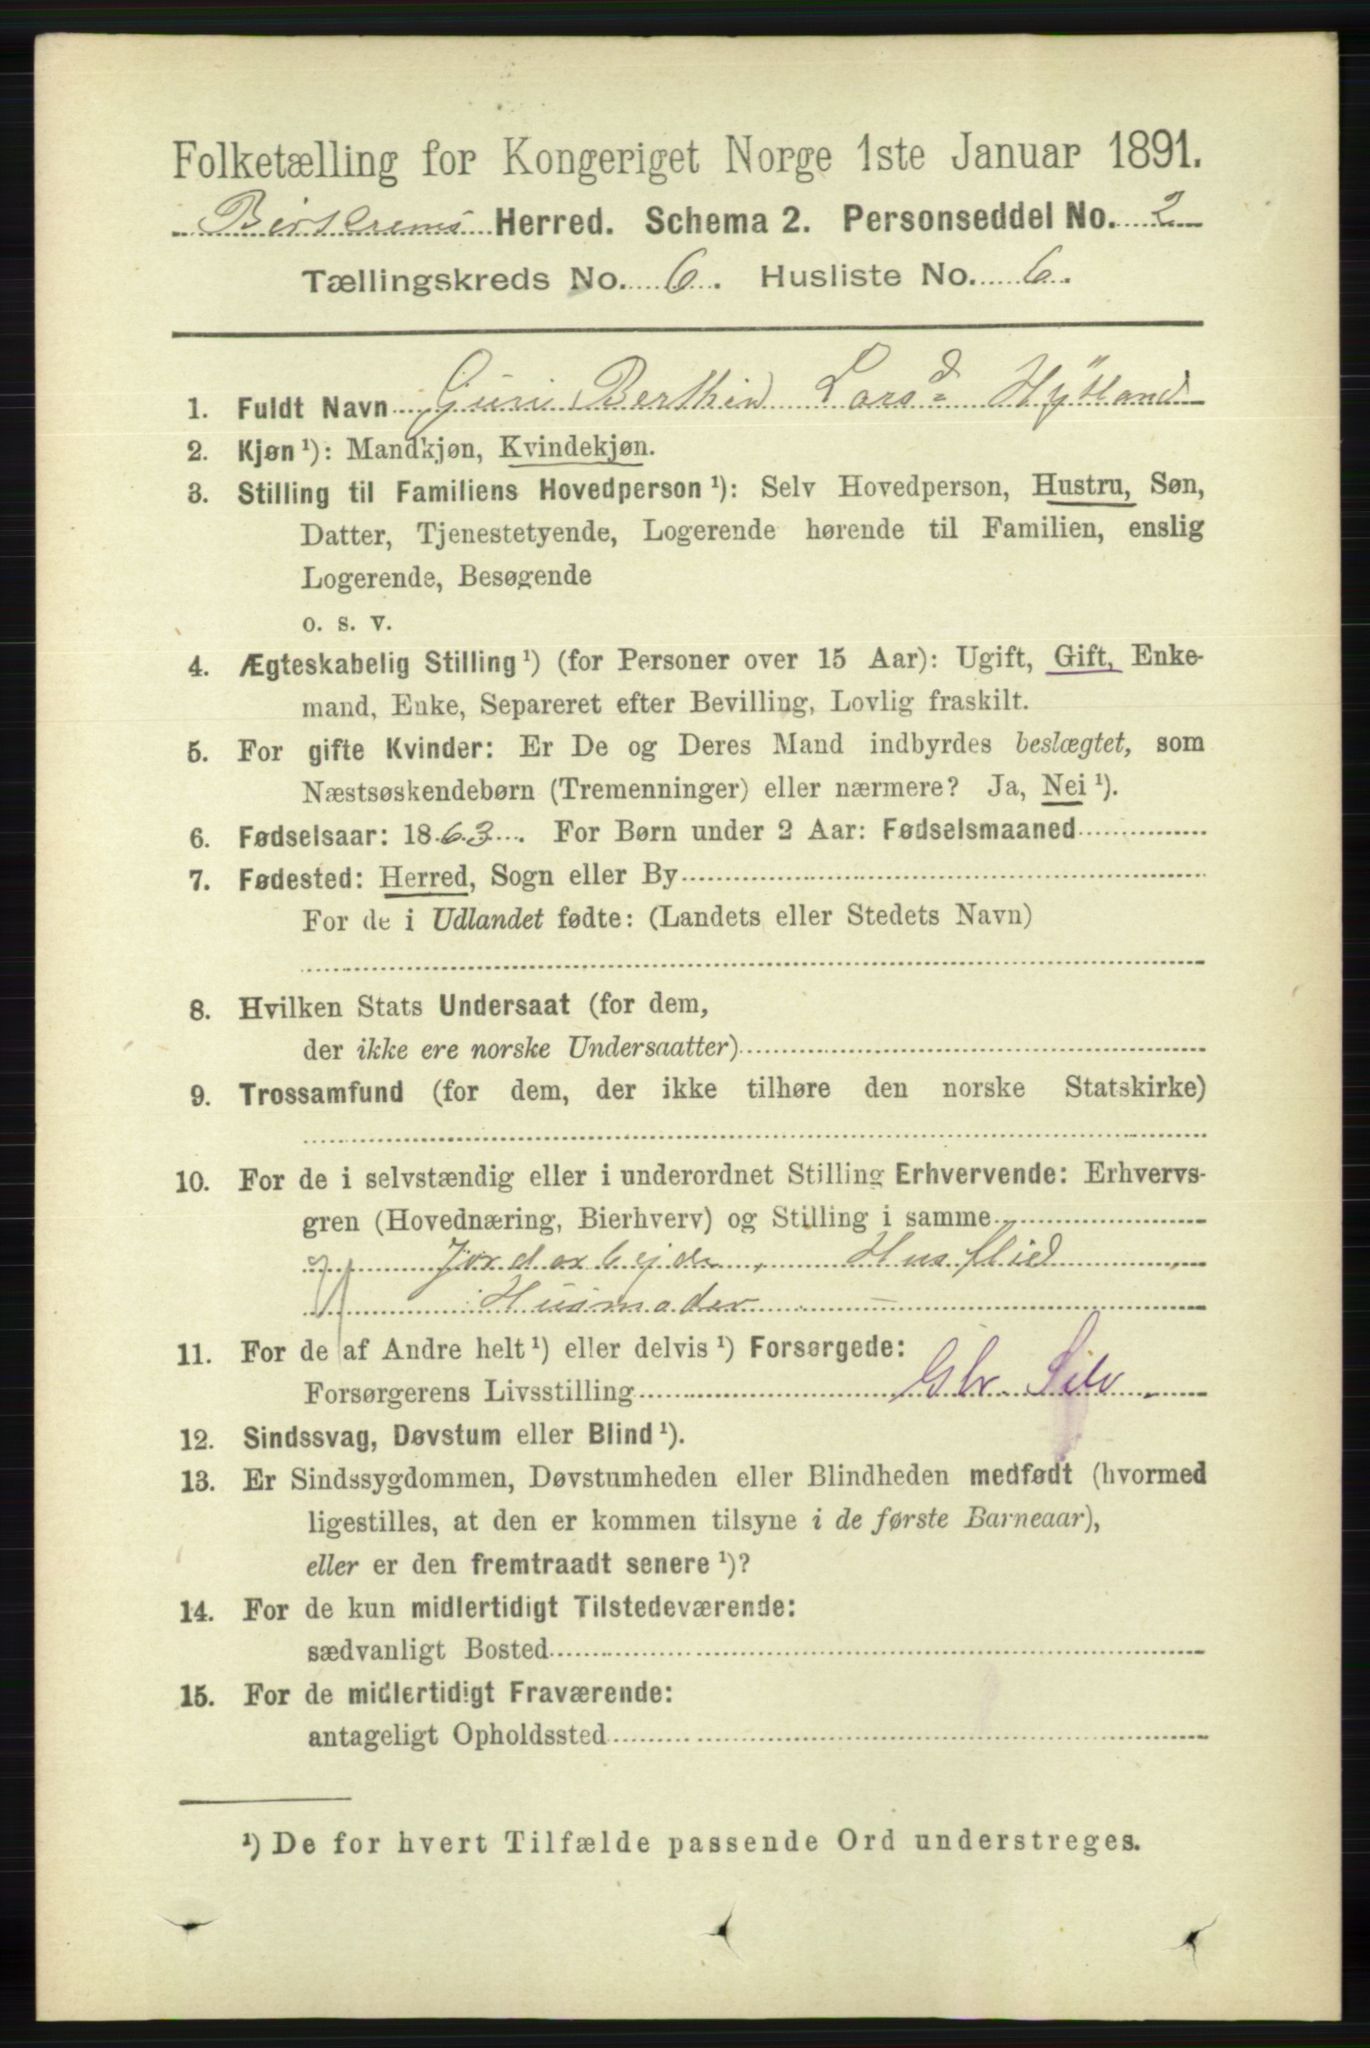 Folketælling for Kongeriget Norge 1ste Januar 1891.
Birkrems Herred. Schema 2. Personseddel No. 2
Tællingskreds No. 6. Husliste No. 6.
1. Fuldt Navn Guri Berthin Larsd Hytland
2. Kjøn ¹): Mandkjøn, Kvindekjøn.
3. Stilling til Familiens Hovedperson ¹): Selv Hovedperson, Hustru, Søn,
Datter, Tjenestetyende, Logerende hørende til Familien, enslig
Logerende, Besøgende
o. s. v.
4. Ægteskabelig Stilling ¹) (for Personer over 15 Aar): Ugift, Gift, Enke-
mand, Enke, Separeret efter Bevilling, Lovlig fraskilt.
5. For gifte Kvinder: Er De og Deres Mand indbyrdes beslægtet, som
Næstsøskendebørn (Tremenninger) eller nærmere? Ja, Nei ¹).
6. Fødselsaar: 1863. For Børn under 2 Aar: Fødselsmaaned
7. Fødested: Herred, Sogn eller By
For de i Udlandet fødte: (Landets eller Stedets Navn)
8. Hvilken Stats Undersaat (for dem,
der ikke ere norske Undersaatter)
9. Trossamfund (for dem, der ikke tilhøre den norske Statskirke)
10. For de i selvstændig eller i underordnet Stilling Erhvervende: Erhvervs-
gren (Hovednæring, Bierhverv) og Stilling i samme
g Jordarbejde, Husflid
Husmoder
11. For de af Andre helt ¹) eller delvis ¹) Forsørgede:
Forsørgerens Livsstilling Gbr. Selv.
12. Sindssvag, Døvstum eller Blind ¹).
13. Er Sindssygdommen, Døvstumheden eller Blindheden medfødt (hvormed
ligestilles, at den er kommen tilsyne i de første Barneaar),
eller er den fremtraadt senere ¹)?
14. For de kun midlertidigt Tilstedeværende:
sædvanligt Bosted
15. For de midlertidigt Fraværende:
antageligt Opholdssted
¹) De for hvert Tilfælde passende Ord understreges.